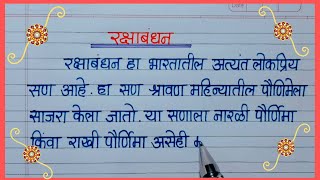 रक्षाबंधन
रक्षाबंधन हा भारतातील अत्यंत लोकप्रिय
सण आहे. हा सण श्रावण महिन्यातील पौर्णिमेला
साजरा केला जातो. या सणाला नारळी पौर्णिमा
किंवा राखी पौर्णिमा असेही